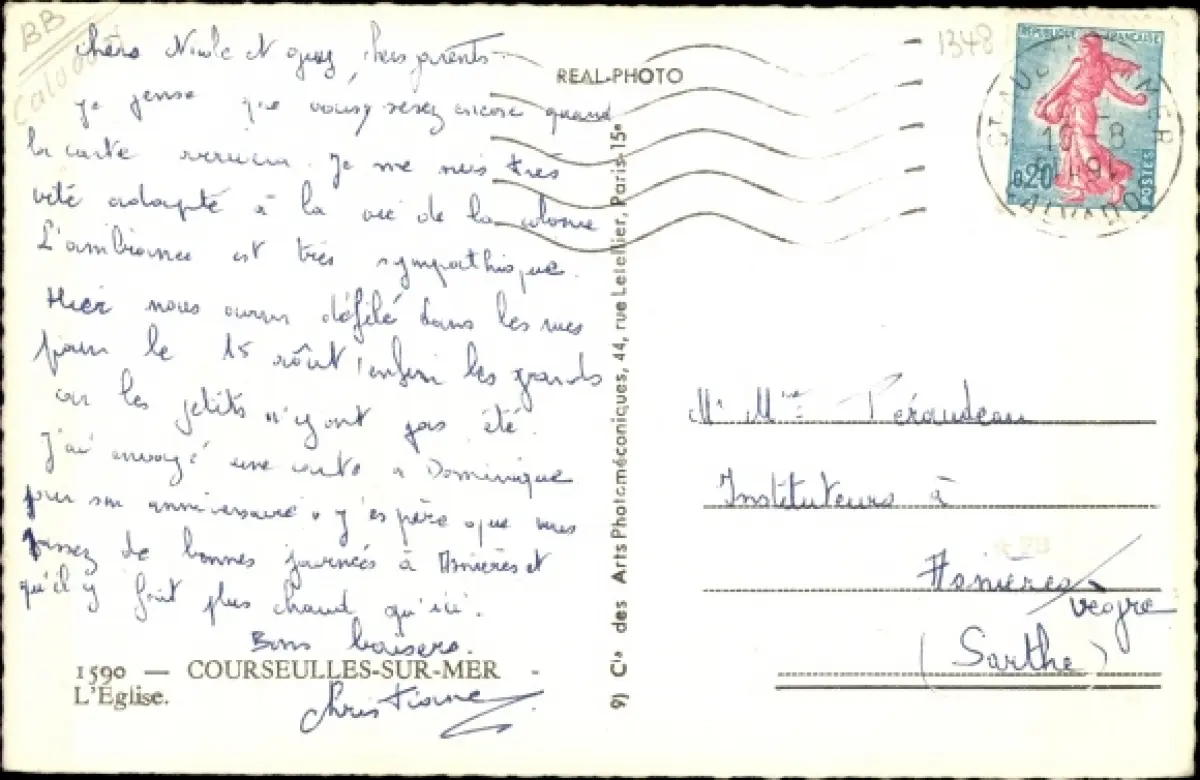 BB
Calvados
chère Nicole et aussi chers parents
Je pense que vous y serez encore quand
la carte arrivera. Je me suis très
vite adapté à la vie de la colonie
L'ambiance est très sympathique.
Hier nous avons défilé dans les rues
pour le 15 août, enfin les grands
car les petits n'y ont pas été.
J'ai envoyé une carte à Dominique
pour son anniversaire. J'espère que vous
passez de bonnes journées à Asnières et
qu'il y fait plus chaud qu'ici.
Bons baisers.
Christiane
1590 — COURSEULLES-SUR-MER -
L'Église.
REAL-PHOTO
9) Cie des Arts Photomécaniques, 44, rue Letellier, Paris-15e
1348
REPUBLIQUE FRANÇAISE
0,20
POSTES
16 - 8
CALVADOS
Mr Mme Péraudeau
Instituteurs à
Asnières/vègre
(Sarthe)